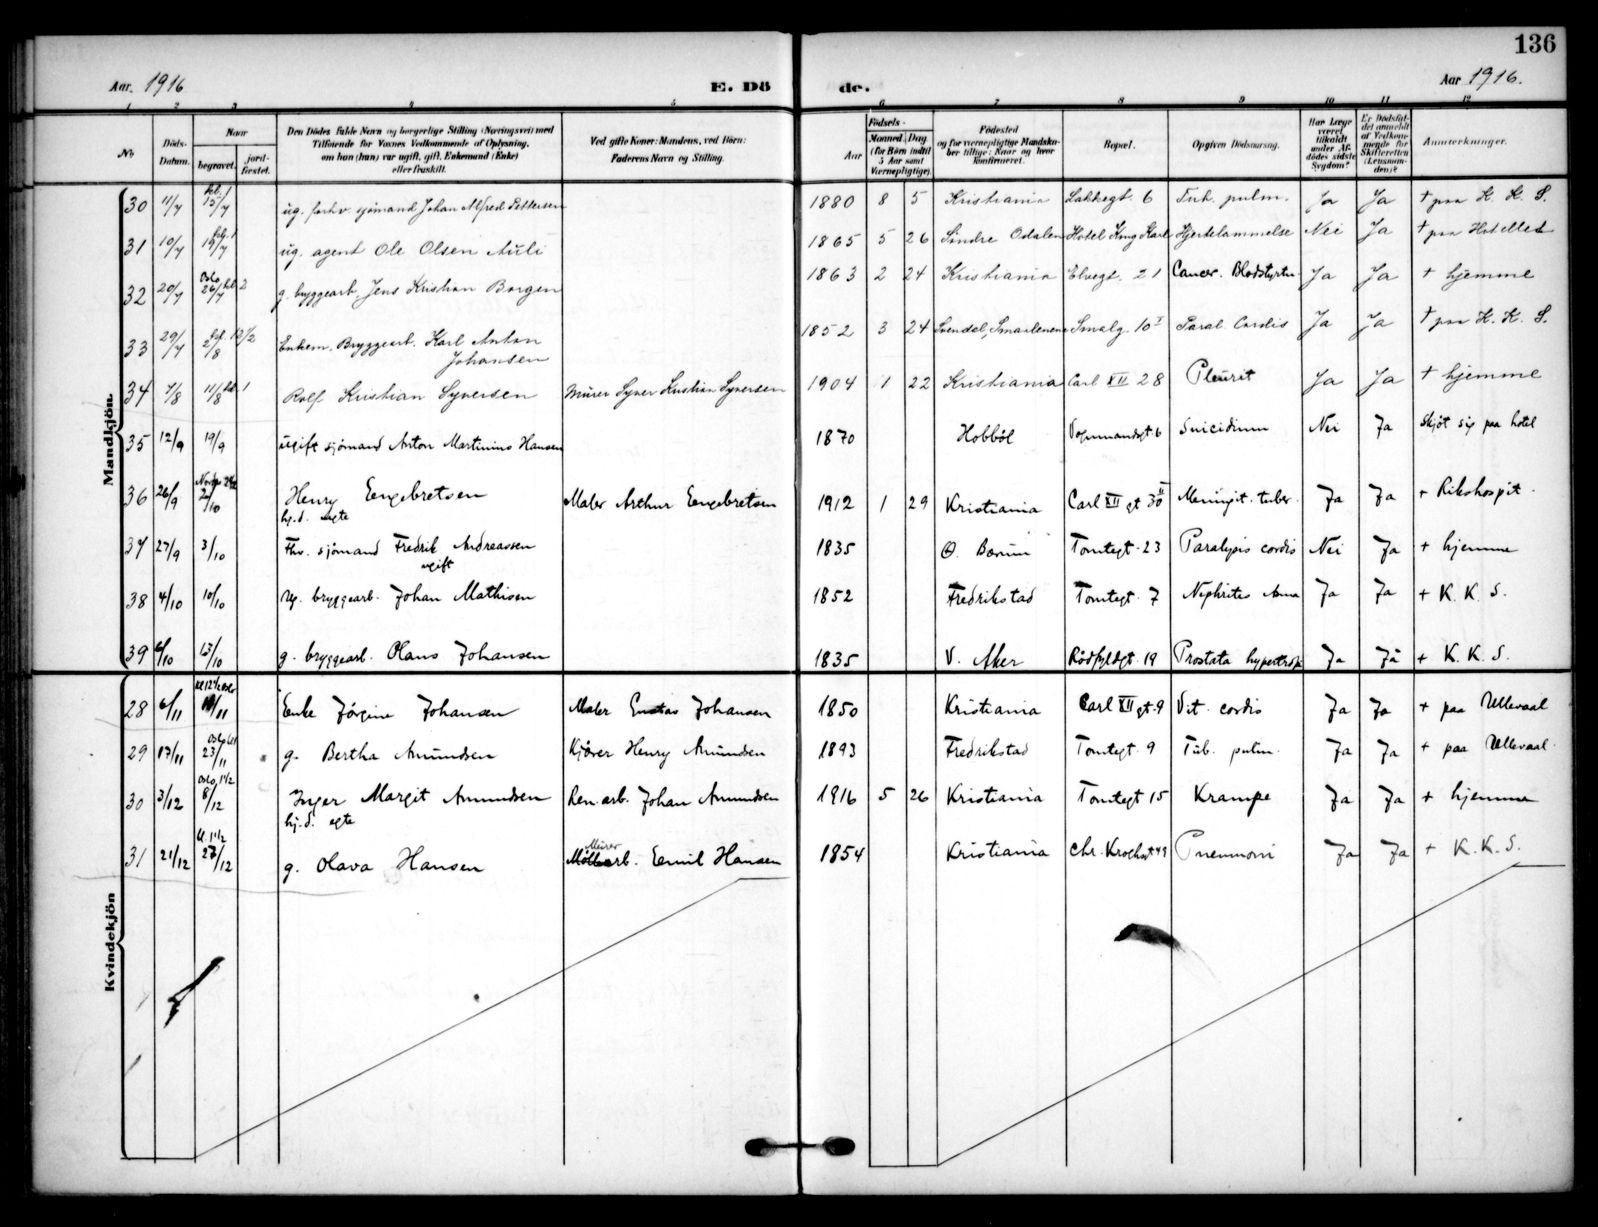 136
Aar 1916
E. Dö
de.
Aar 1916.
1 2 3 4 5 6 7 8 9 10 11 12
No.
Döds-Datum.
Naar
begravet.
jord-fæstet.
Den Dödes fulde Navn og borgerlige Stilling (Næringsvei) med
Tilföiende for Voxnes Vedkommende af Oplysning,
om han (hun) var ugift, gift, Enkemand (Enke)
eller fraskilt.
Ved gifte Koner: Mandens, ved Börn:
Faderens Navn og Stilling.
Födsels-
Aar
Maaned Dag
(for Börn indtil
5 Aar samt
Værnepligtige).
Födested
og for værnepligtige Mandska-
ber tillige: Naar og hvor
konfirmeret.
Bopæl.
Opgiven Dödsaarsag.
Har Læge
været
tilkaldt
under Af-
dödes sidste
Sygdom?
Er Dödsfal-
det anmeldt
af Vedkom-
mende for
Skifteretten
(Lensman-
den)?
Anmærkninger.
Mandkjön.
30 11/7 kl. 1 15/7 ug. forhv. sjömand Johan Alfred Pettersen 1880 8 5 Kristiania Lakkegt. 6 Tub. pulm. Ja Ja + paa K. K. S.
31 10/7 kl. 1 19/7 ug. agent Ole Olsen Auli 1865 5 26 Söndre Odalen Hotel Kong Karl Hjertelammelse Nei Ja + paa Hotellet
32 20/7 Oslo kl 2 26/7 g. bryggearb. Jens Kristian Borgen 1863 2 24 Kristiania Elvegt. 21 Cancer. Blodstyrtn. Ja Ja + hjemme
33 29/7 kl. 12 1/2 2/8 Enkem. Bryggearb. Karl Anton
Johansen 1852 3 24 Svendal, Smaalenene Smalg. 10 I Paral. Cordis Ja Ja + paa K. K. S.
34 7/8 11/8 kl. 1 Rolf Kristian Syversen Murer Syver Kristian Syversen 1904 1 22 Kristiania Carl XII 28 Pleurit Ja Ja + hjemme
35 12/9 19/9 ugift sjömand Anton Martinius Hansen 1870 Hobböl Vognmandsgt 6 Suicidium Nei Ja Skjöt sig paa hotel
36 26/9 2/10 Henry Engebretsen
hj.d. ægte Maler Arthur Engebretsen 1912 1 29 Kristiania Carl XII gt 30 II Meningit. tuber. Ja Ja + Rikshospit.
37 27/9 3/10 Fhv. sjömand Fredrik Andreassen
ugift 1835 Ø. Bærum Tomtegt. 23 Paralysis cordis Nei Ja + hjemme
38 4/10 10/10 ug. bryggearb. Johan Mathisen 1852 Fredrikstad Tomtegt. 7 Nephritis Ja Ja + K. K. S.
39 6/10 13/10 g. bryggearb. Olaus Johansen 1835 V. Aker Rödfyldgt. 19 Prostata hypertrofi Ja Ja + K. K. S.
Kvindekjön
28 6/11 kl 12 1/2 Oslo 11/11 Enke Jörgine Johansen Maler Gustav Johansen 1850 Kristiania Carl XII gt. 9 Vit. cordis Ja Ja + paa Ullevaal
29 17/11 Oslo kl 1 23/11 g. Bertha Amundsen Kjörer Henry Amundsen 1893 Fredrikstad Tomtegt. 9 Tub. pulm. Ja Ja + paa Ullevaal.
30 3/12 Oslo, 1 1/2 8/12 Inger Margit Amundsen
hj.d. ægte Ren.arb. Johan Amundsen 1916 5 26 Kristiania Tomtegt 15 Krampe Ja Ja + hjemme
31 21/12 kl. 1 1/2 27/12 g. Olava Hansen Murer arb. Emil Hansen 1854 Kristiania Chr. Kroghsgt 49 Pneumoni Ja Ja + K. K. S.